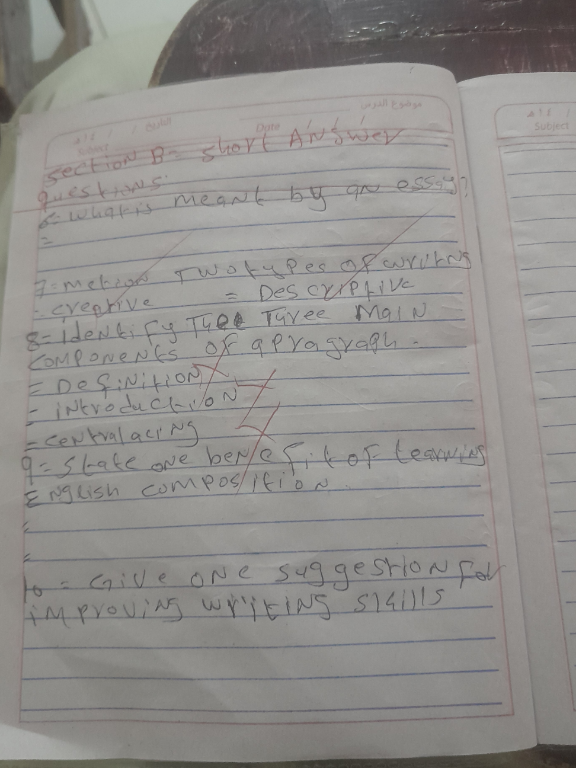 موضوع الدرس
Date
التاريخ / / ١٤هـ
Subject
section B= short Answer
questions.
6= what is meant by an essay?
=
7= metion Two types of writng
- creptive = Descriptive
8= identify THree Main
components of apragraph.
= Definition
= introduction
=centralacing
9= state one benefit of learning
English composition.
=
=
10 = Give one suggestion for
improving writing skills